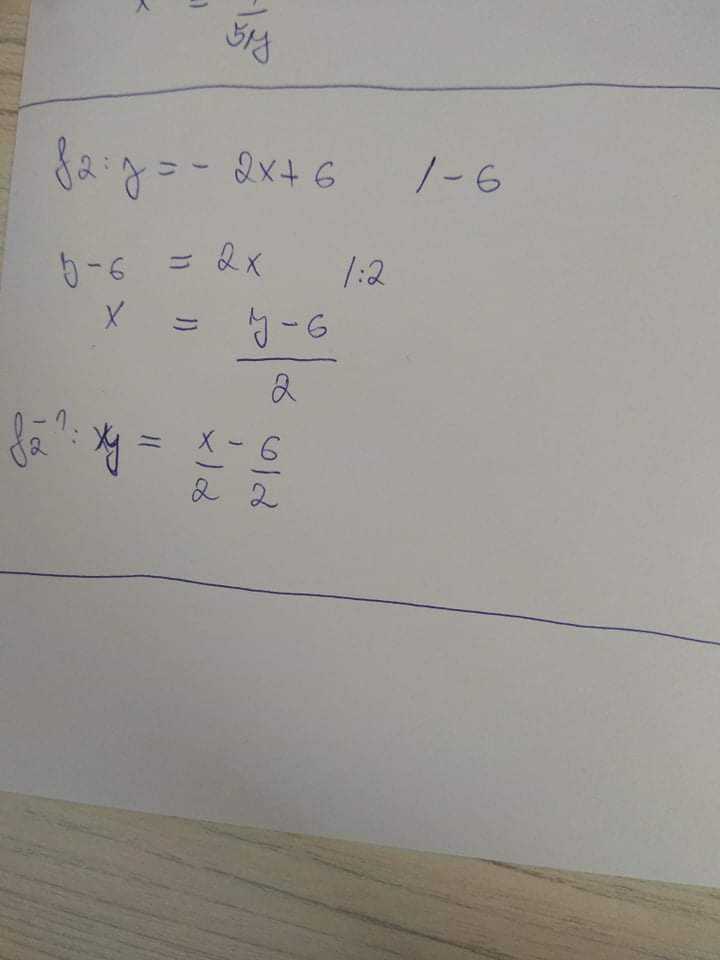 x =
5y
f2: y = - 2x + 6 / - 6
y - 6 = 2x / : 2
x = y - 6
2
f2⁻¹: y = x - 6
2 2